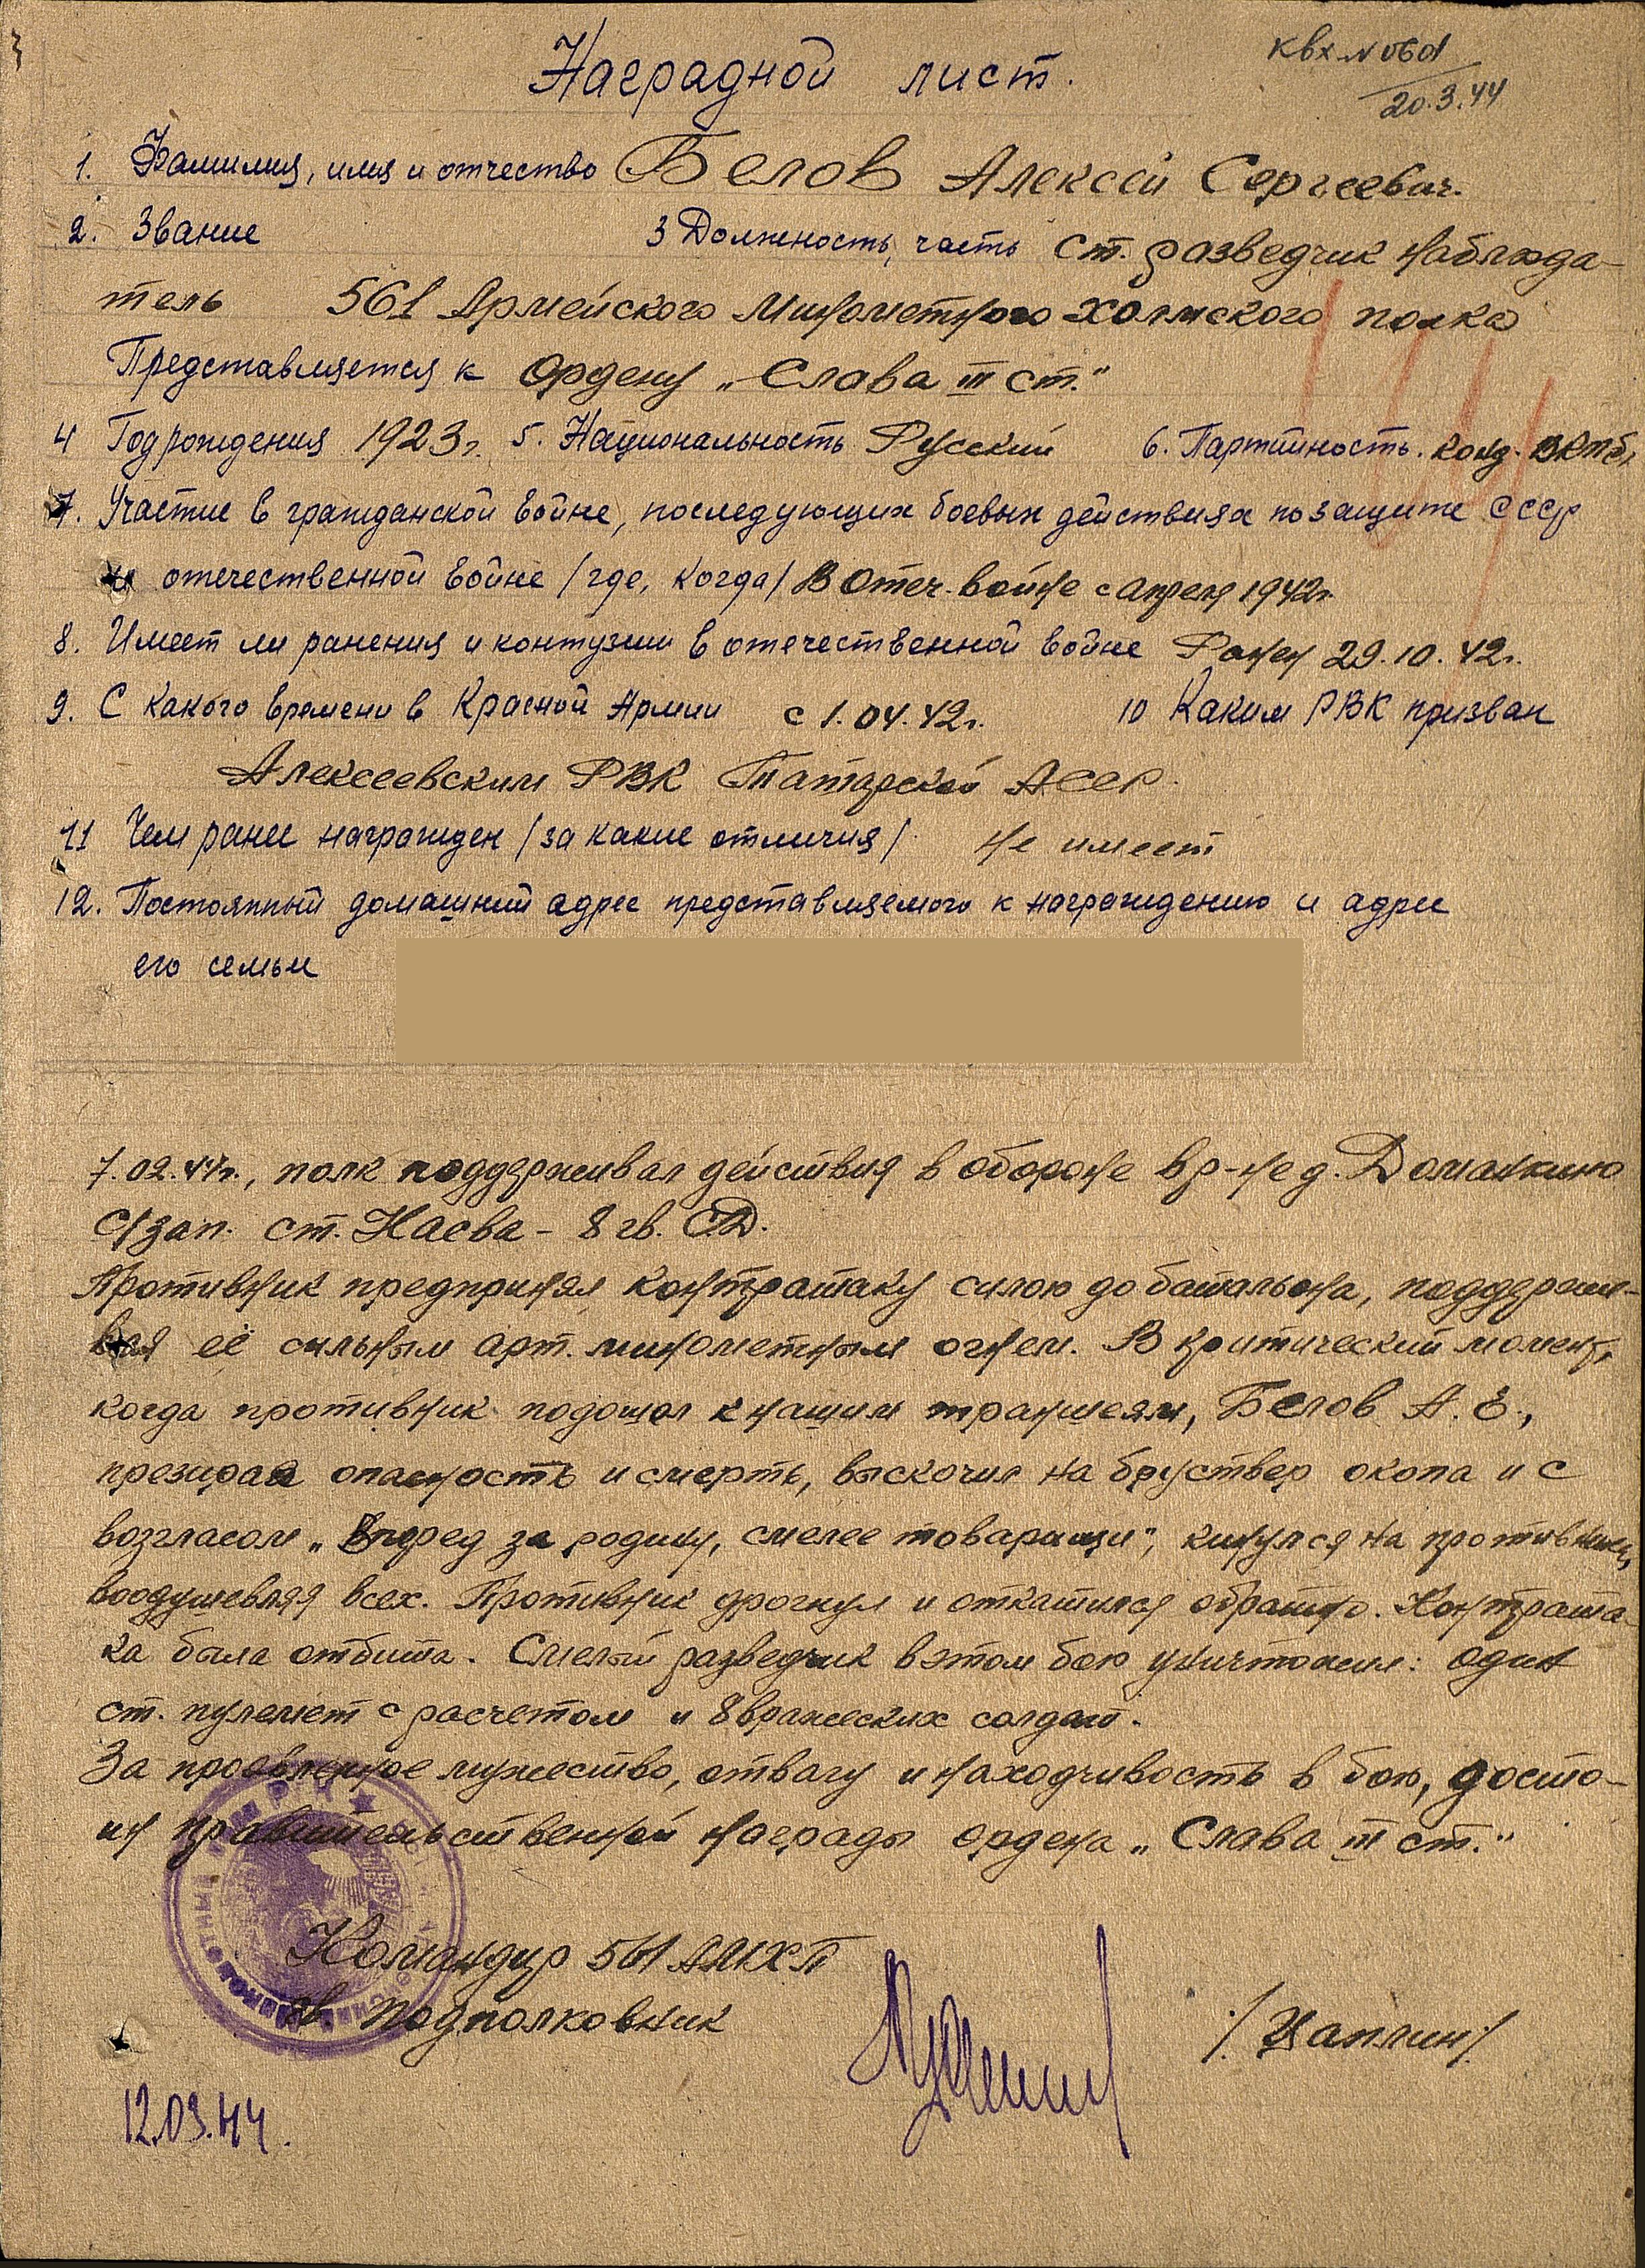 Наградной лист.
20.3.44
1. Фамилия, имя и отчество Белов Алексей Сергеевич.
2. Звание 3 Должность, часть Ст. разведчик наблюда-
тель 561 Армейского Минометного Холмского полка
Представляется к Ордену „Слава III ст."
4 Год рождения 1923г. 5. Национальность Русский 6. Партийность. канд. ВКПб,
7. Участие в гражданской войне, последующих боевых действиях по защите СССР
и отечественной войне /где, когда/ В Отеч. войне с апреля 1942г.
8. Имеет ли ранения и контузии в отечественной войне Ранен 29.10.42г.
9. С какого времени в Красной Армии с 1.04.42г. 10 Каким РВК призван
Алексеевским РВК Татарской АССР.
11 Чем ранее награжден /за какие отличия/. не имеет
12. Постоянный домашний адрес представляемого к награждению и адрес
его семьи
7.02.44г., полк поддерживал действия в обороне в р-не д. Доманкино
с/зап. ст. Насва - 8 гв. СД.
Противник предпринял контратаку силою до батальона, поддержи-
вая её сильным арт. минометным огнем. В критический момент,
когда противник подошол к нашим траншеям, Белов А. Е.,
презирая опасность и смерть, выскочил на бруствер окопа и с
возгласом „Вперед за родину, смелее товарищи", кинулся на противника,
воодушевляя всех. Противник дрогнул и откатился обратно. Контрата-
ка была отбита. Смелый разведчик в этом бою уничтожил: один
ст. пулемет с расчетом и 8 вражеских солдат.
За проявленное мужество, отвагу и находчивость в бою, досто-
ин правительственной награды ордена „Слава III ст."
Командир 561 АМХП
гв. подполковник /Цаплин/
12.03.44.